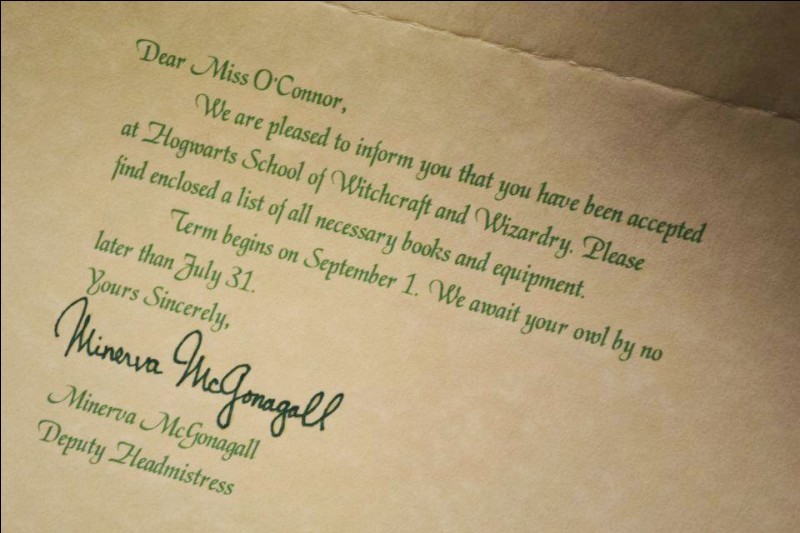 Dear Miss O'Connor,
We are pleased to inform you that you have been accepted
at Hogwarts School of Witchcraft and Wizardry. Please
find enclosed a list of all necessary books and equipment.
Term begins on September 1. We await your owl by no
later than July 31.
Yours Sincerely,
Minerva McGonagall
Minerva McGonagall
Deputy Headmistress